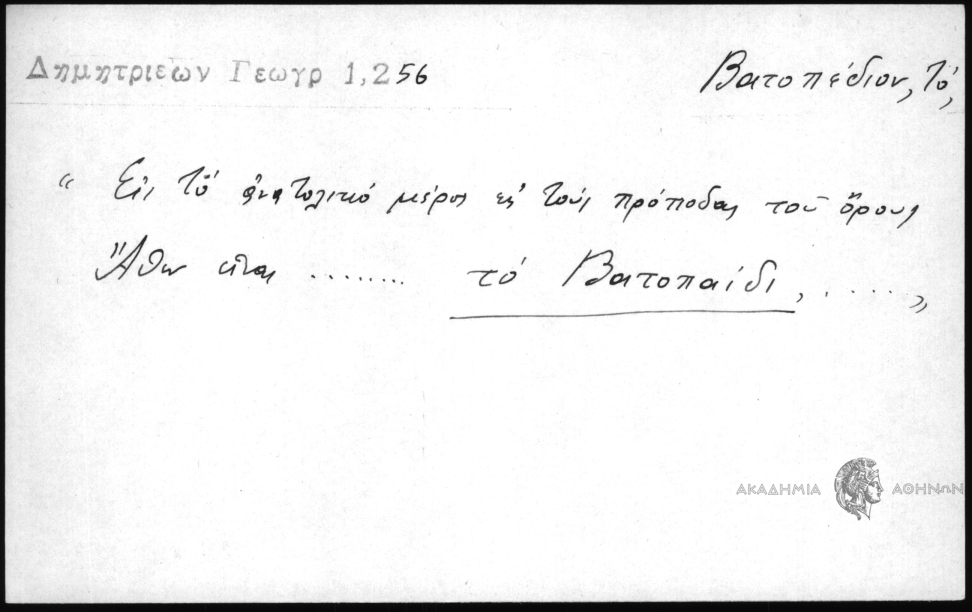 Δημητριέων Γεωγρ 1,256
Βατοπέδιον, τό,
“ Εἰς τὸ ἀνατολικό μέρος εἰς τούς πρόποδας τοῦ ὄρους
Ἄθω εἶναι ........ τό Βατοπαίδι, ..... „
ΑΚΑΔΗΜΙΑ ΑΘΗΝΩΝ